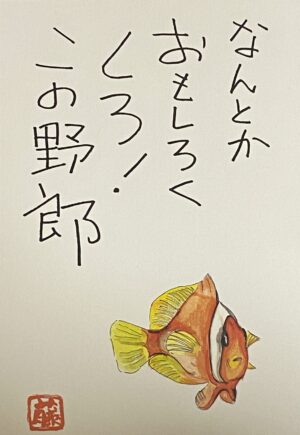 なんとか
おもしろく
しろ！
この野郎